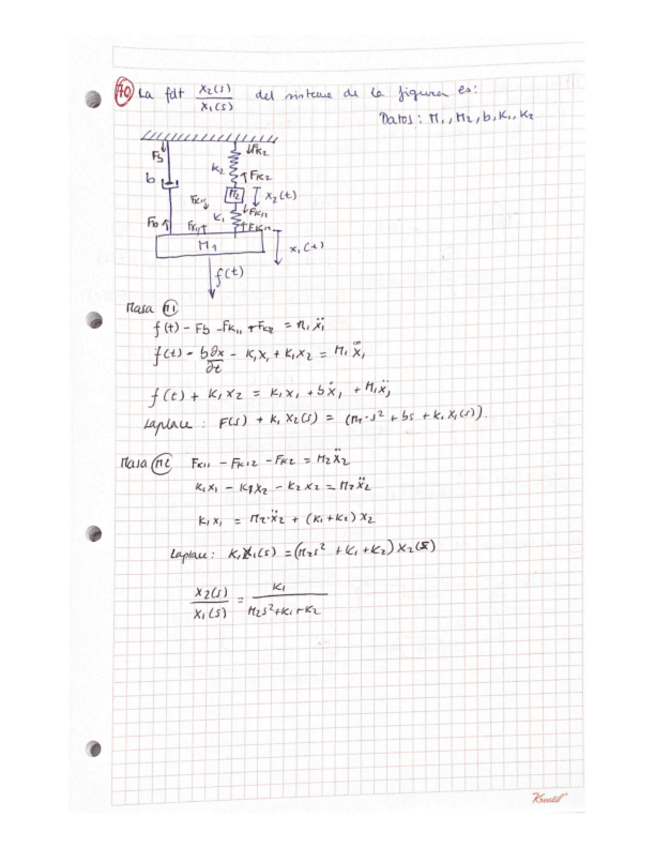 70 La fdt X₂(s)/X₁(s) del sistema de la figura es:
Datos: M₁, M₂, b, K₁, K₂
Fb
↓FK2
K₂
↑FK2
b
M₂
X₂(t)
FK11
↓FK11
K₁
Fb↑
FK11↑
↑FK11
M₁
x₁(t)
f(t)
Masa M1
f(t) - Fb - FK11 + FK12 = M₁ẍ₁
f(t) - b∂x/∂t - K₁x₁ + K₁x₂ = M₁ẍ₁
f(t) + K₁x₂ = K₁x₁ + bẋ₁ + M₁ẍ₁
Laplace: F(s) + K₁X₂(s) = (M₁·s² + bs + K₁X₁(s)).
Masa M2 FK11 - FK12 - FK2 = M₂ẍ₂
K₁x₁ - K1x₂ - K₂x₂ = M₂ẍ₂
K₁x₁ = M₂·ẍ₂ + (K₁+K₂)x₂
Laplace: K₁X₁(s) = (M₂s² + K₁+K₂)X₂(s)
X₂(s)/X₁(s) = K₁/(M₂s²+K₁+K₂)